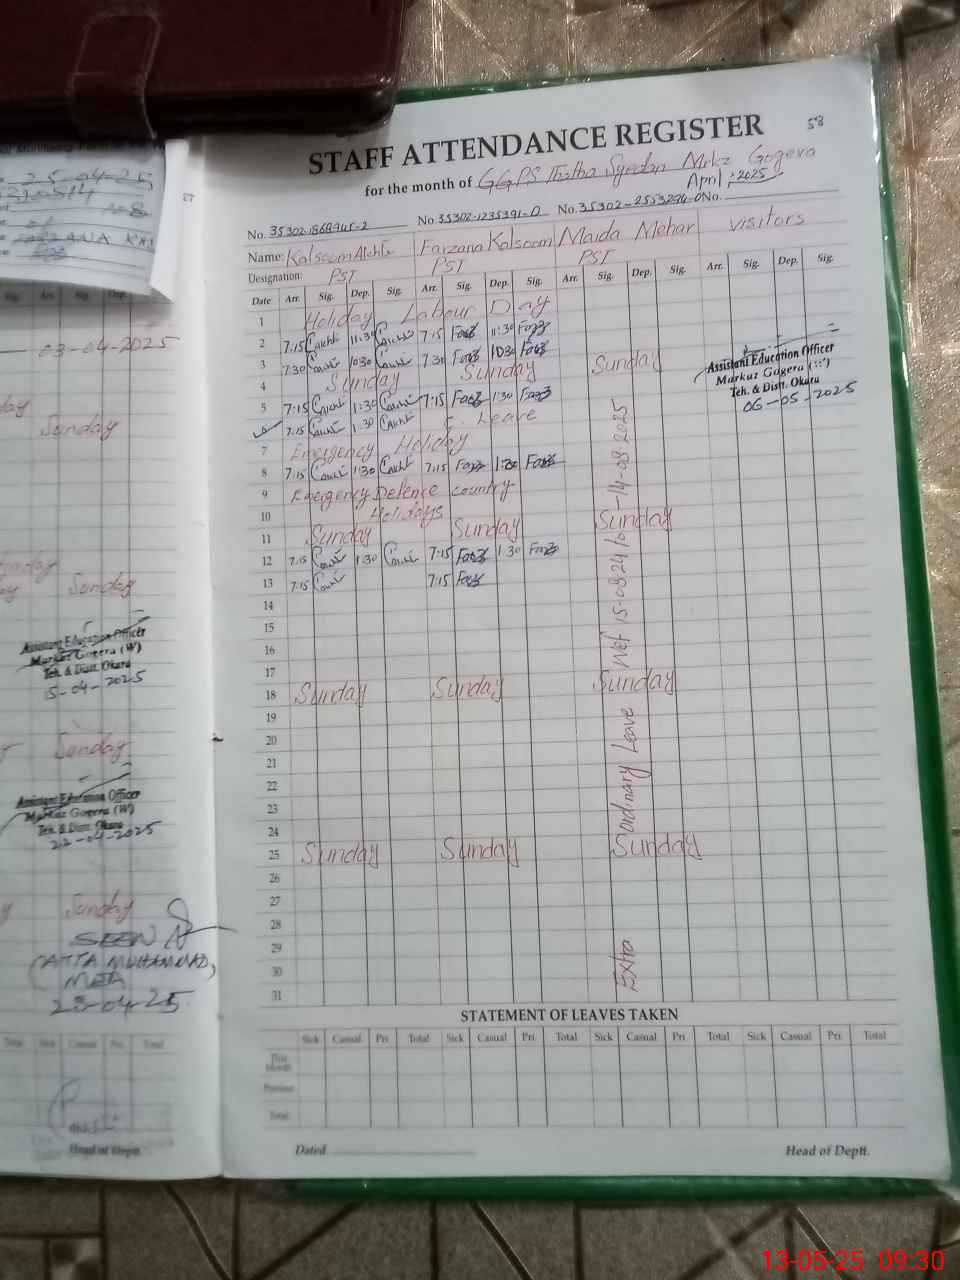 58
STAFF ATTENDANCE REGISTER
for the month of GGPS Thatha Syedan Mrkz Gogera
April, 2025
No. 35302-1868945-2 No. 35302-1235391-0 No. 35302-2553294-0 No.
Name: Kalsoom Akhtr Farzana Kalsoom Maida Mehar visitors
Designation: PST PST PST
Date Arr. Sig. Dep. Sig. Arr. Sig. Dep. Sig. Arr. Sig. Dep. Sig. Arr. Sig. Dep. Sig.
1 Holiday Labour Day
2 7:15 11:30 7:15 11:30
3 7:30 10:30 7:30 10:30
4 Sunday Sunday Sunday
5 7:15 1:30 7:15 1:30
6 7:15 1:30 Leave
7 Emergency Holiday
8 7:15 1:30 7:15 1:30
9 Emergency Defence country
10 Holidays
11 Sunday Sunday Sunday
12 7:15 1:30 7:15 1:30
13 7:15 7:15
14
15
16
17
18 Sunday Sunday Sunday
19
20
21
22
23
24
25 Sunday Sunday Sunday
26
27
28
29
30
31
Extra ordinary Leave Wef 15-08-24 to 14-08-2025
Assistant Education Officer
Markaz Gogera
Teh. & Distt. Okara
06-05-2025
STATEMENT OF LEAVES TAKEN
Sick Casual Pri. Total Sick Casual Pri. Total Sick Casual Pri. Total Sick Casual Pri. Total
This Month
Previous
Total
Dated Head of Deptt.
25-04-25
03-04-2025
Sunday
Sunday
Assistant Education Officer
Markaz Gogera (W)
Teh. & Distt. Okara
15-04-2025
Sunday
Assistant Education Officer
Markaz Gogera (W)
Teh. & Distt. Okara
22-04-2025
Sunday
SEEN
(ATTA MUHAMMAD,
MEA
23-04-25
Total Sick Casual Pri. Total
Head of Deptt.
13-05-25 09:30